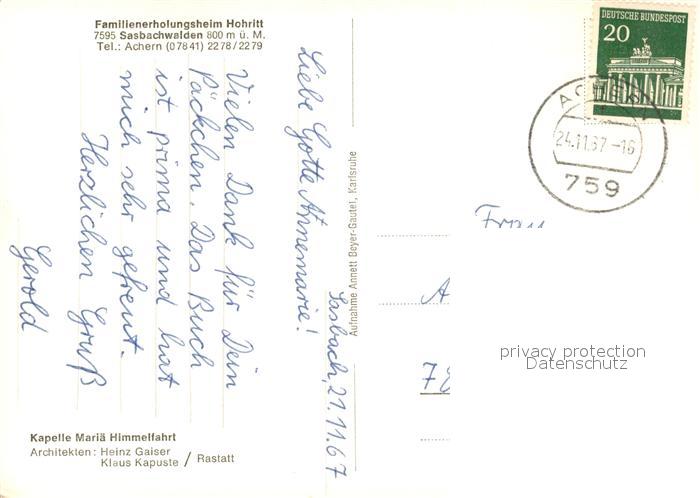 Familienerholungsheim Hohritt
7595 Sasbachwalden 800 m ü. M.
Tel.: Achern (0 78 41) 22 78 / 22 79
Sasbach, 21.11.67
Liebe Gotte Annemarie!
Vielen Dank für Dein
Päckchen. Das Buch
ist prima und hat
mich sehr gefreut.
Herzlichen Gruß
Gerold
Kapelle Mariä Himmelfahrt
Architekten: Heinz Gaiser
Klaus Kapuste / Rastatt
Aufnahme Annett Beyer-Gautel, Karlsruhe
DEUTSCHE BUNDESPOST
20
24.11.67-16
759
Frau
A
privacy protection
Datenschutz